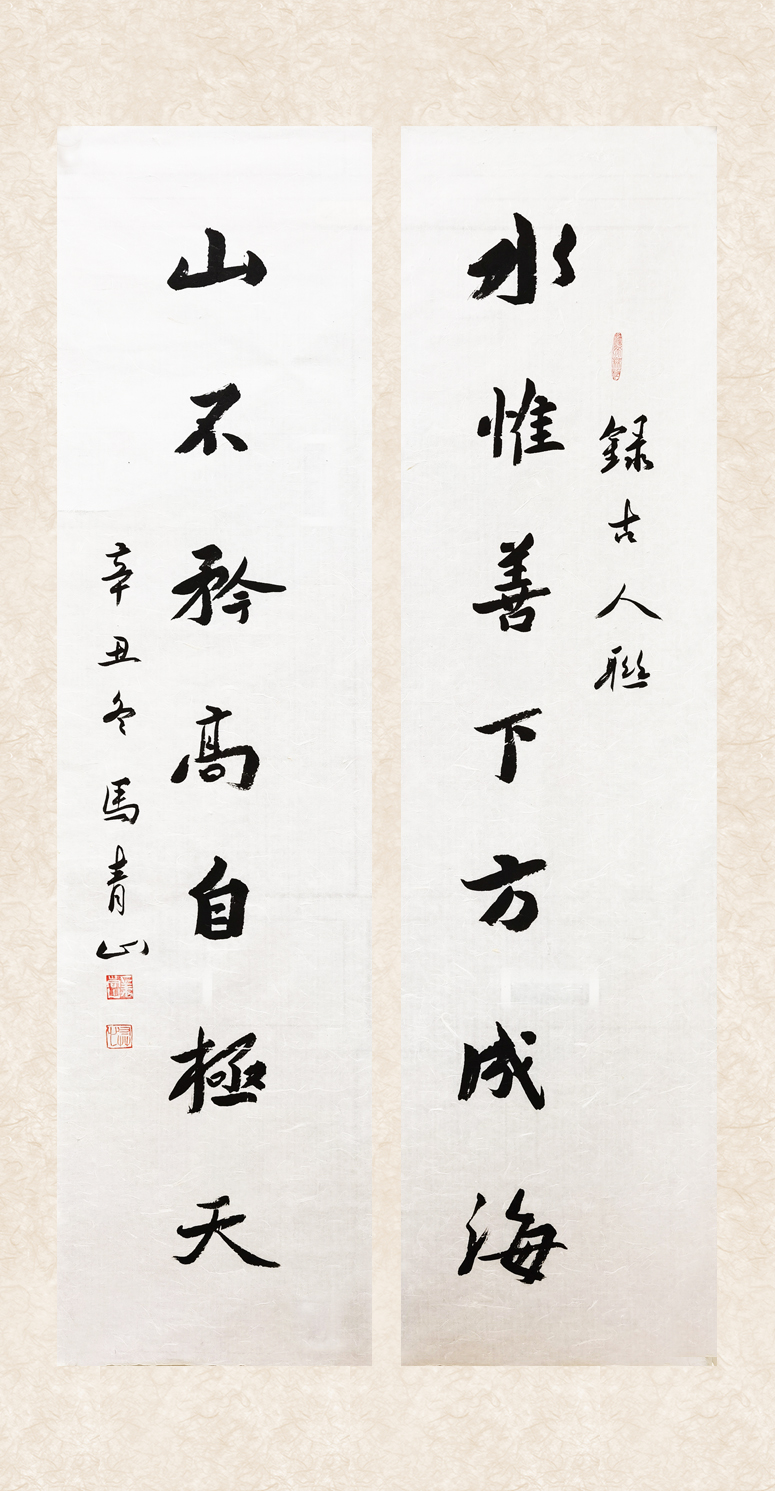 水惟善下方成海
錄古人聯
山不矜高自極天
辛丑冬馬青山